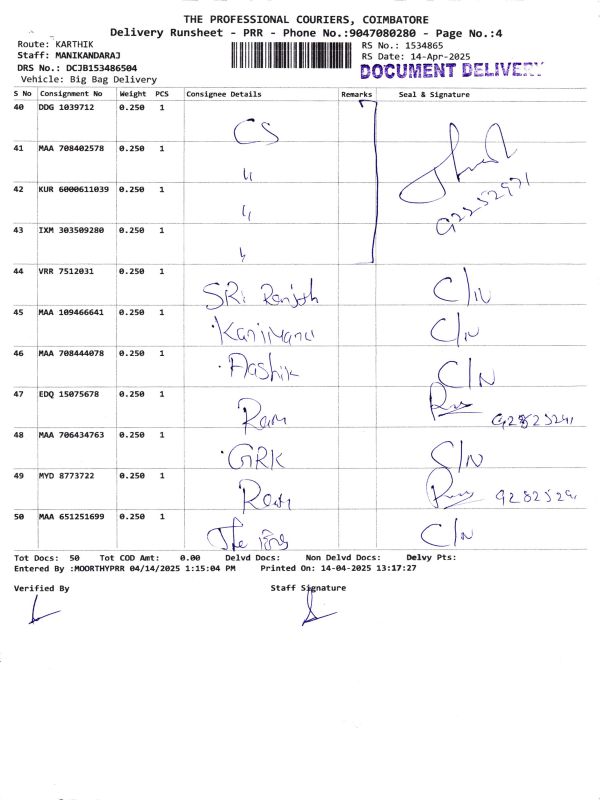 THE PROFESSIONAL COURIERS, COIMBATORE
Delivery Runsheet - PRR - Phone No.:9047080280 - Page No.:4
Route: KARTHIK
Staff: MANIKANDARAJ
DRS No.: DCJB153486504
Vehicle: Big Bag Delivery
RS No.: 1534865
RS Date: 14-Apr-2025
DOCUMENT DELIVERY
S No Consignment No Weight PCS Consignee Details Remarks Seal & Signature
40 DDG 1039712 0.250 1 CS
41 MAA 708402578 0.250 1 "
42 KUR 6000611039 0.250 1 "
43 IXM 303509280 0.250 1 "
44 VRR 7512031 0.250 1 SRi Ranjith C/N
45 MAA 109466641 0.250 1 C/N
46 MAA 708444078 0.250 1 Aashik C/N
47 EDQ 15075678 0.250 1 Ram
48 MAA 706434763 0.250 1 GRK S/N
49 MYD 8773722 0.250 1
50 MAA 651251699 0.250 1 The C/N
Tot Docs: 50 Tot COD Amt: 0.00 Delvd Docs: Non Delvd Docs: Delvy Pts:
Entered By :MOORTHYPRR 04/14/2025 1:15:04 PM Printed On: 14-04-2025 13:17:27
Verified By Staff Signature